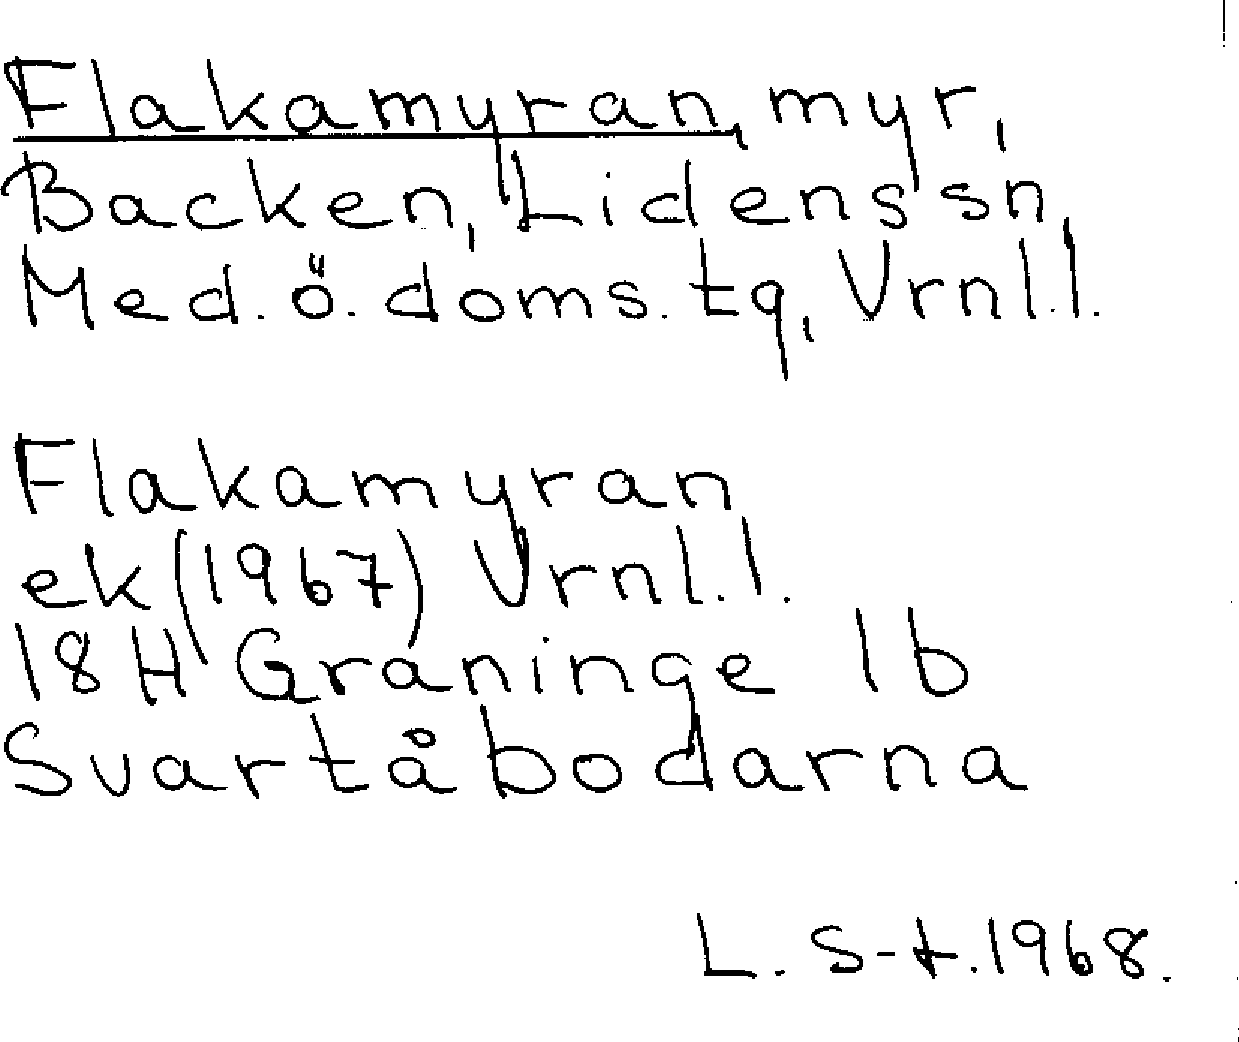 Flakamyran, myr,
Backen, Lidens sn,
Med. ö. doms. tg, Vrnl.l.
Flakamyran
ek (1967) Vrnl.l.
18H Graninge 1b
Svartåbodarna
L. S-t. 1968.